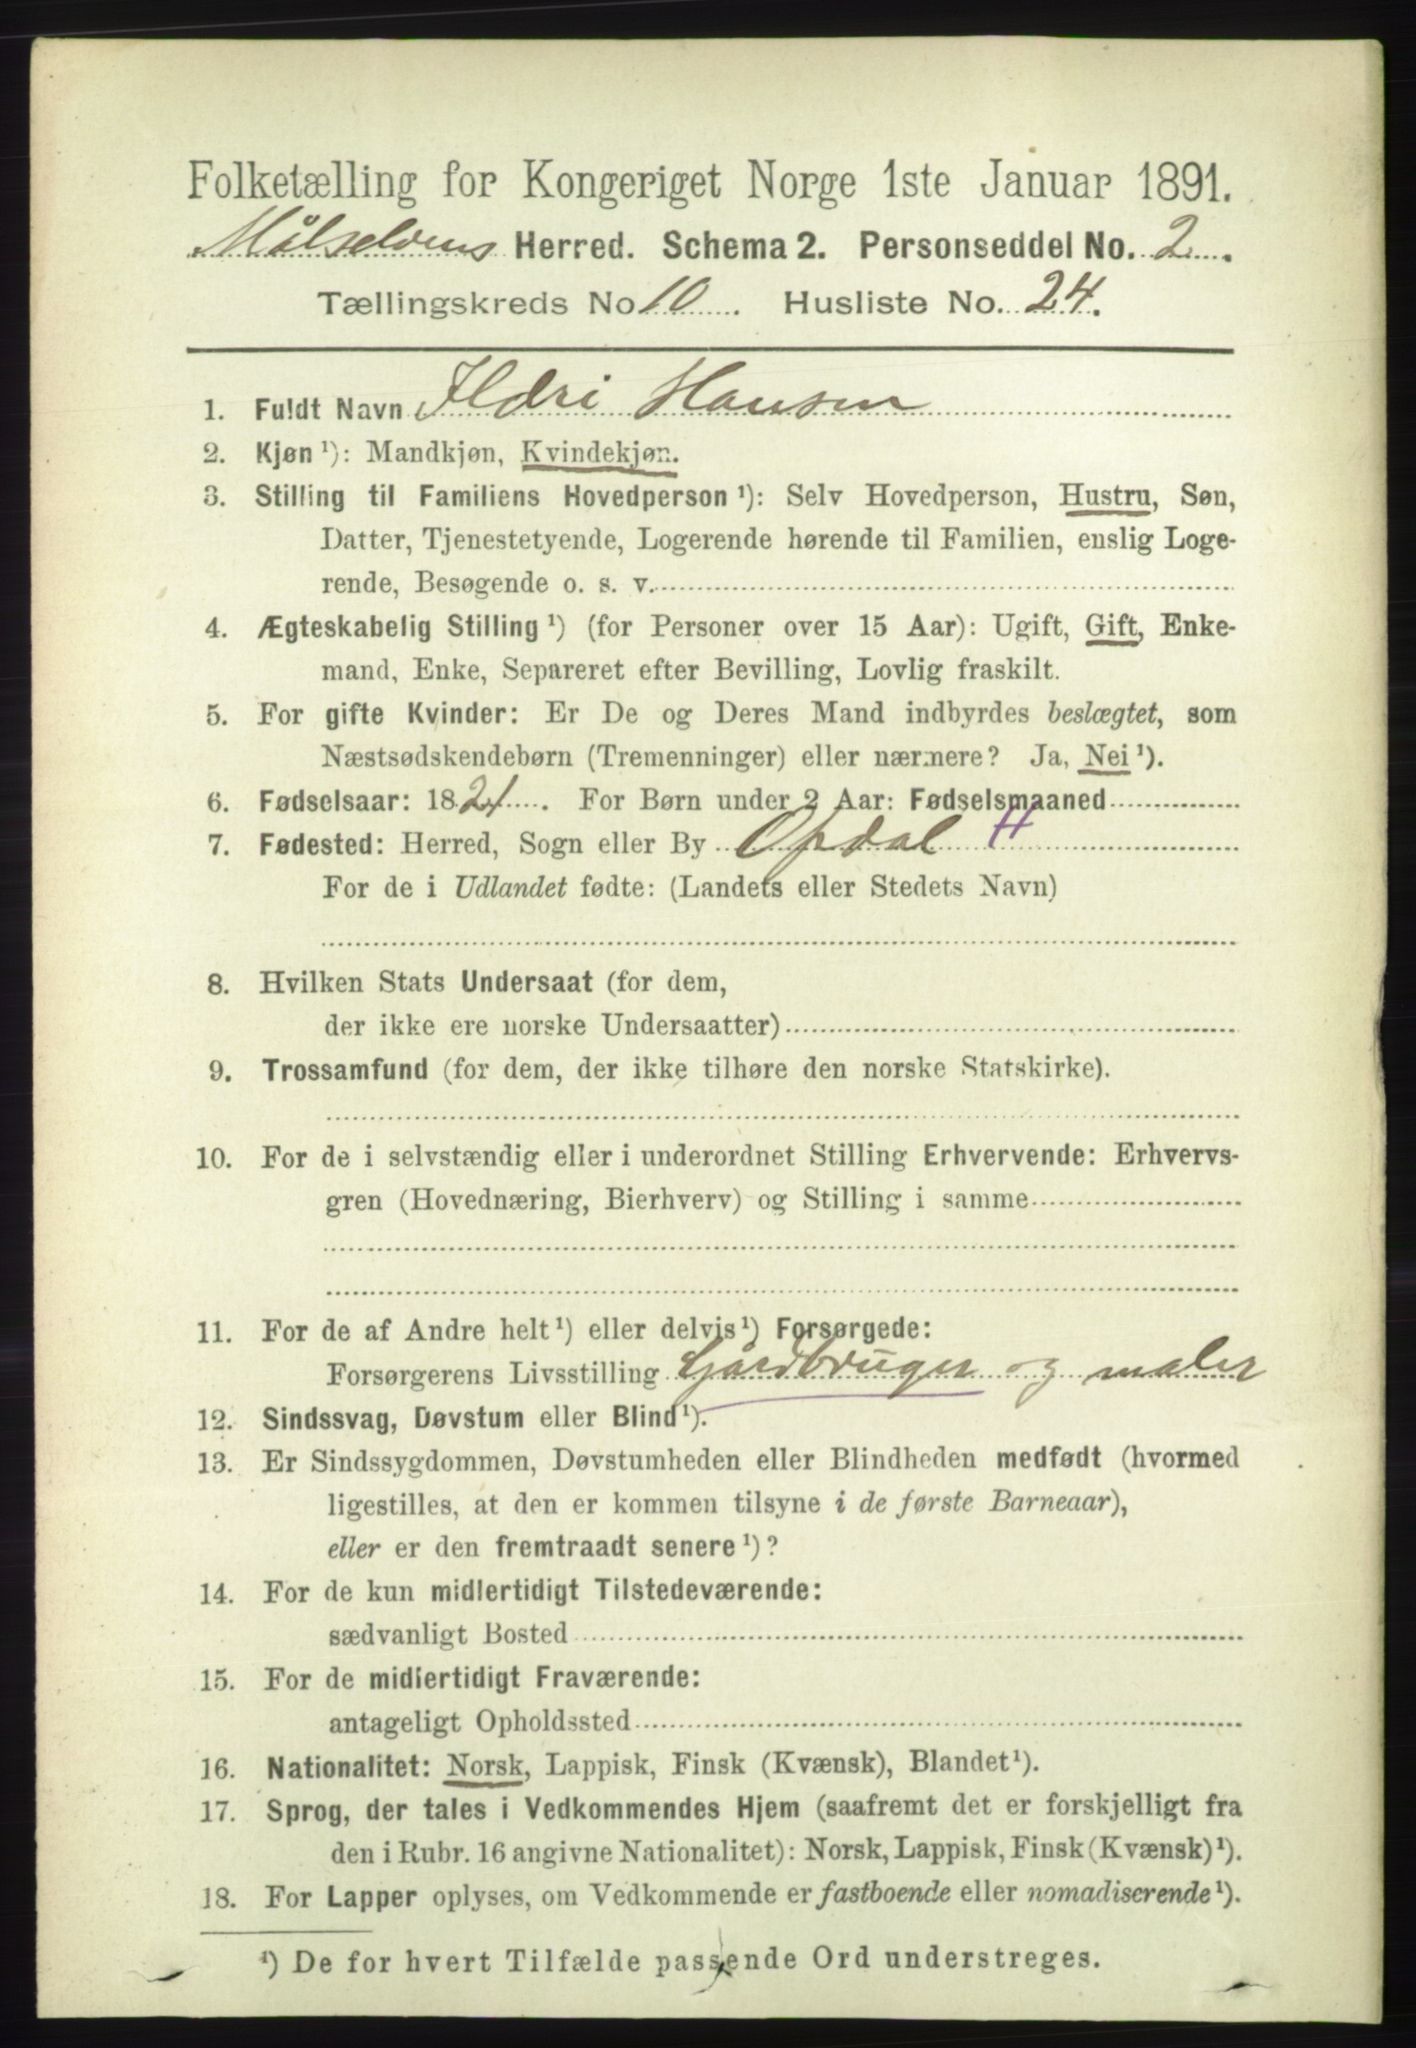 Folketælling for Kongeriget Norge 1ste Januar 1891.
Målselvens Herred. Schema 2. Personseddel No. 2
Tællingskreds No 10. Husliste No. 24.
1. Fuldt Navn Ildri Hansen
2. Kjøn ¹): Mandkjøn, Kvindekjøn.
3. Stilling til Familiens Hovedperson ¹): Selv Hovedperson, Hustru, Søn,
Datter, Tjenestetyende, Logerende hørende til Familien, enslig Loge-
rende, Besøgende o. s. v.
4. Ægteskabelig Stilling ¹) (for Personer over 15 Aar): Ugift, Gift, Enke-
mand, Enke, Separeret efter Bevilling, Lovlig fraskilt.
5. For gifte Kvinder: Er De og Deres Mand indbyrdes beslægtet, som
Næstsødskendebørn (Tremenninger) eller nærmere? Ja, Nei ¹).
6. Fødselsaar: 1824. For Børn under 2 Aar: Fødselsmaaned
7. Fødested: Herred, Sogn eller By Opdal H
For de i Udlandet fødte: (Landets eller Stedets Navn)
8. Hvilken Stats Undersaat (for dem,
der ikke ere norske Undersaatter)
9. Trossamfund (for dem, der ikke tilhøre den norske Statskirke).
10. For de i selvstændig eller i underordnet Stilling Erhvervende: Erhvervs-
gren (Hovednæring, Bierhverv) og Stilling i samme
11. For de af Andre helt ¹) eller delvis ¹) Forsørgede:
Forsørgerens Livsstilling Gårdbruger og maler
12. Sindssvag, Døvstum eller Blind ¹).
13. Er Sindssygdommen, Døvstumheden eller Blindheden medfødt (hvormed
ligestilles, at den er kommen tilsyne i de første Barneaar),
eller er den fremtraadt senere ¹)?
14. For de kun midlertidigt Tilstedeværende:
sædvanligt Bosted
15. For de midlertidigt Fraværende:
antageligt Opholdssted
16. Nationalitet: Norsk, Lappisk, Finsk (Kvænsk), Blandet ¹).
17. Sprog, der tales i Vedkommendes Hjem (saafremt det er forskjelligt fra
den i Rubr. 16 angivne Nationalitet): Norsk, Lappisk, Finsk (Kvænsk) ¹).
18. For Lapper oplyses, om Vedkommende er fastboende eller nomadiserende ¹).
¹) De for hvert Tilfælde passende Ord understreges.